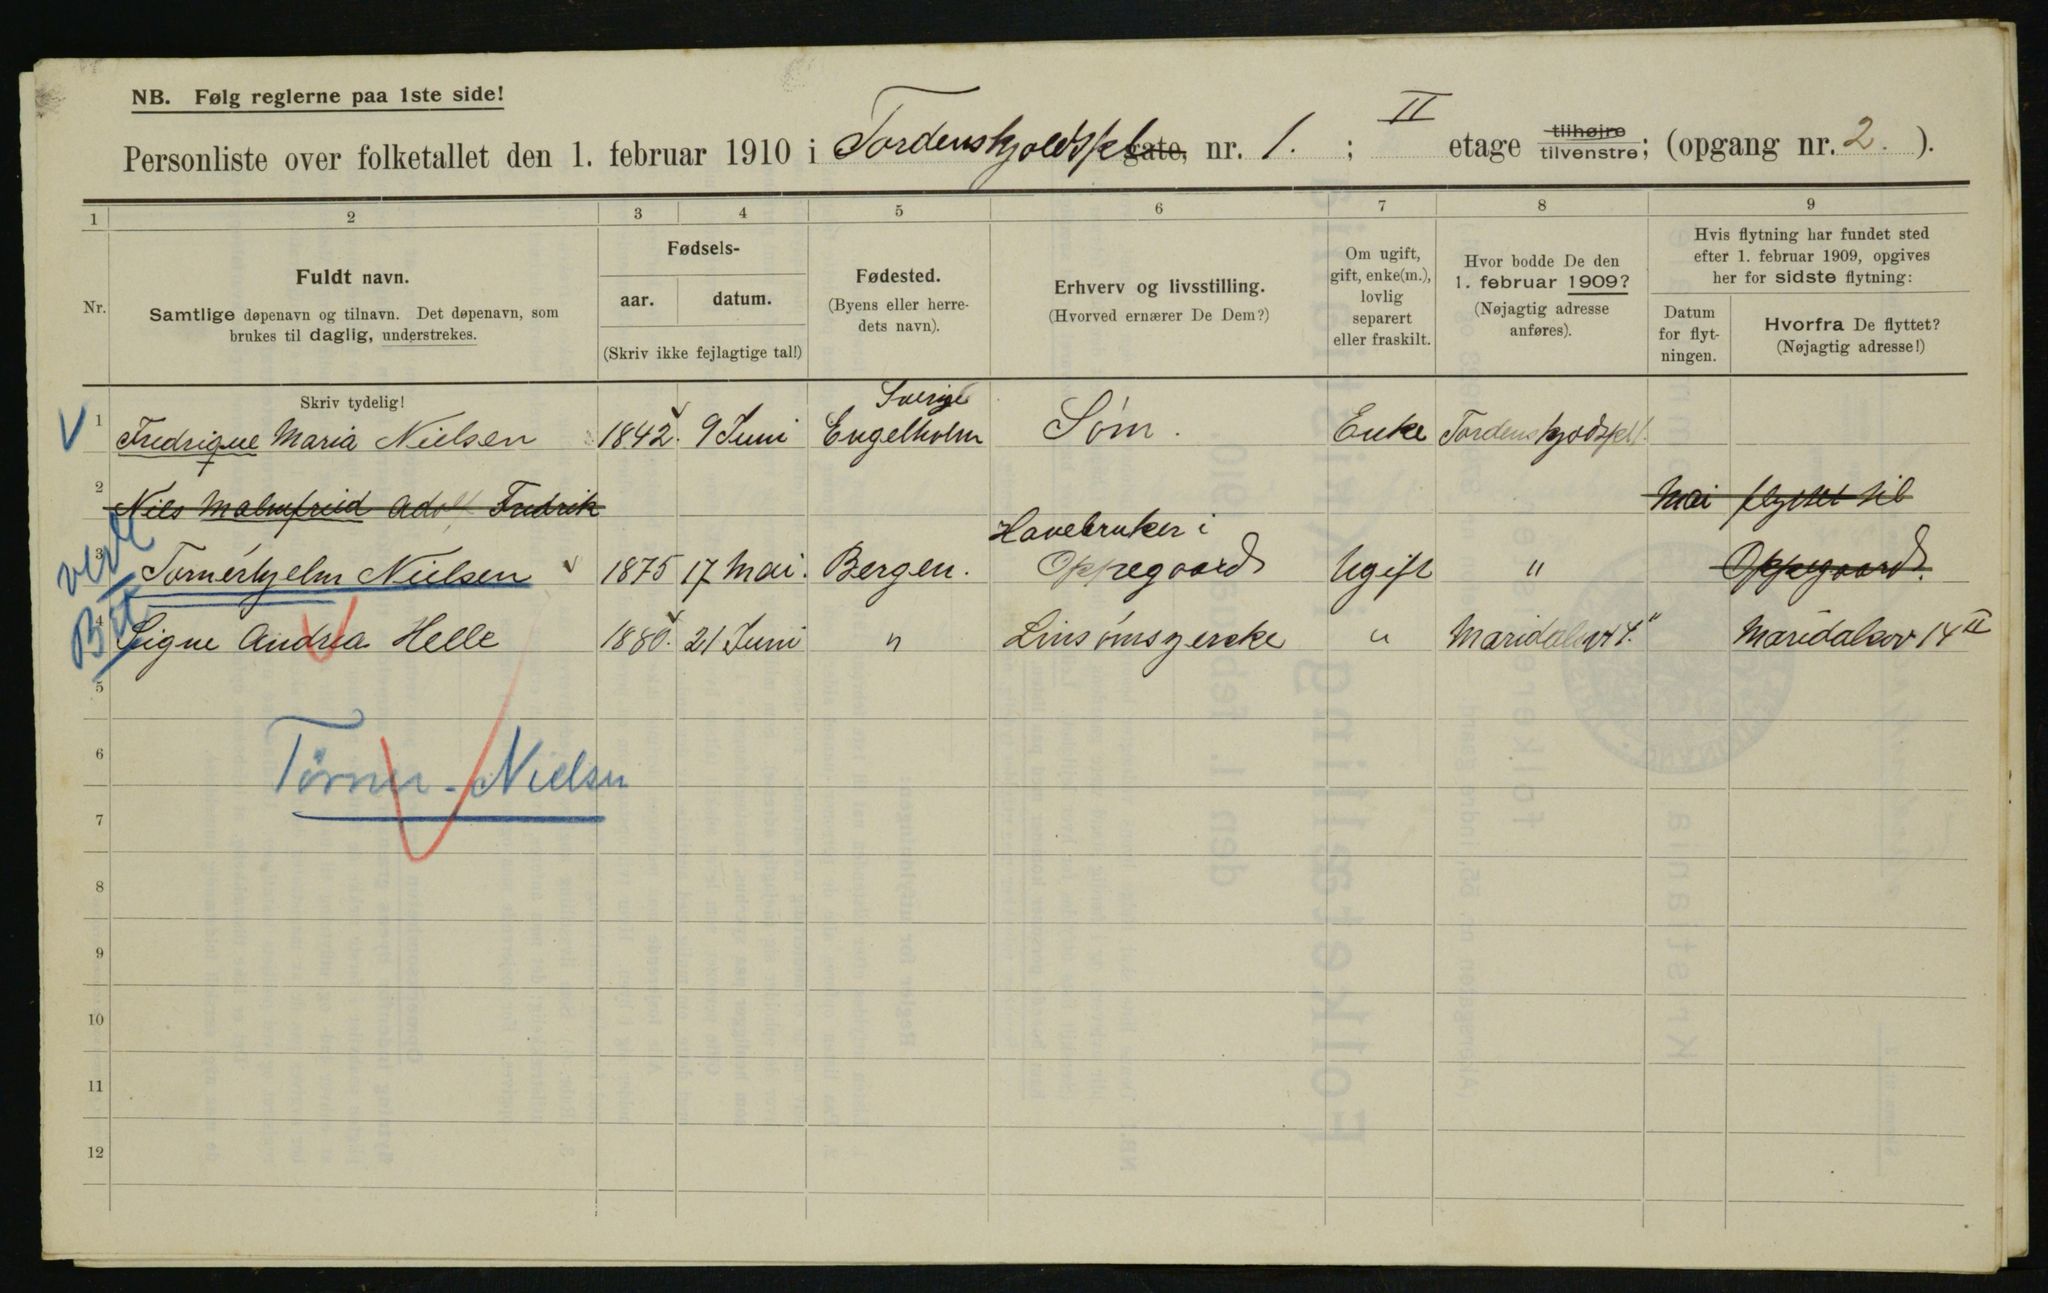 NB. Følg reglerne paa 1ste side!
Personliste over folketallet den 1. februar 1910 i Tordenskjoldspl gate, nr. 1. ; II etage tilhøjre tilvenstre; (opgang nr. 2. ).
1 2 3 4 5 6 7 8 9
Nr.
Fuldt navn.
Samtlige døpenavn og tilnavn. Det døpenavn, som
brukes til daglig, understrekes.
Fødsels-
aar. datum.
(Skriv ikke fejlagtige tal!)
Fødested.
(Byens eller herre-
dets navn).
Erhverv og livsstilling.
(Hvorved ernærer De Dem?)
Om ugift,
gift, enke(m.),
lovlig
separert
eller fraskilt.
Hvor bodde De den
1. februar 1909?
(Nøjagtig adresse
anføres).
Hvis flytning har fundet sted
efter 1. februar 1909, opgives
her for sidste flytning:
Datum
for flyt-
ningen.
Hvorfra De flyttet?
(Nøjagtig adresse!)
Skriv tydelig!
Sverige
1 Fredrique Maria Nielsen 1842. 9 Juni Engelholm Søm. Enke Tordenskjoldspl 1.
2 Nils Malmfried Adolf Fredrik Mai flyttet til
Havebruker i
3 Tornérhjelm Nielsen 1875 17 Mai. Bergen. Oppegaard Ugift " Oppegaard.
4 Signe Andrea Helle 1880. 21 Juni " Linsømsyerske " Maridalsv 14." Maridalsv 14 II
5
6
Tørner-Nielsen
7
8
9
10
11
12